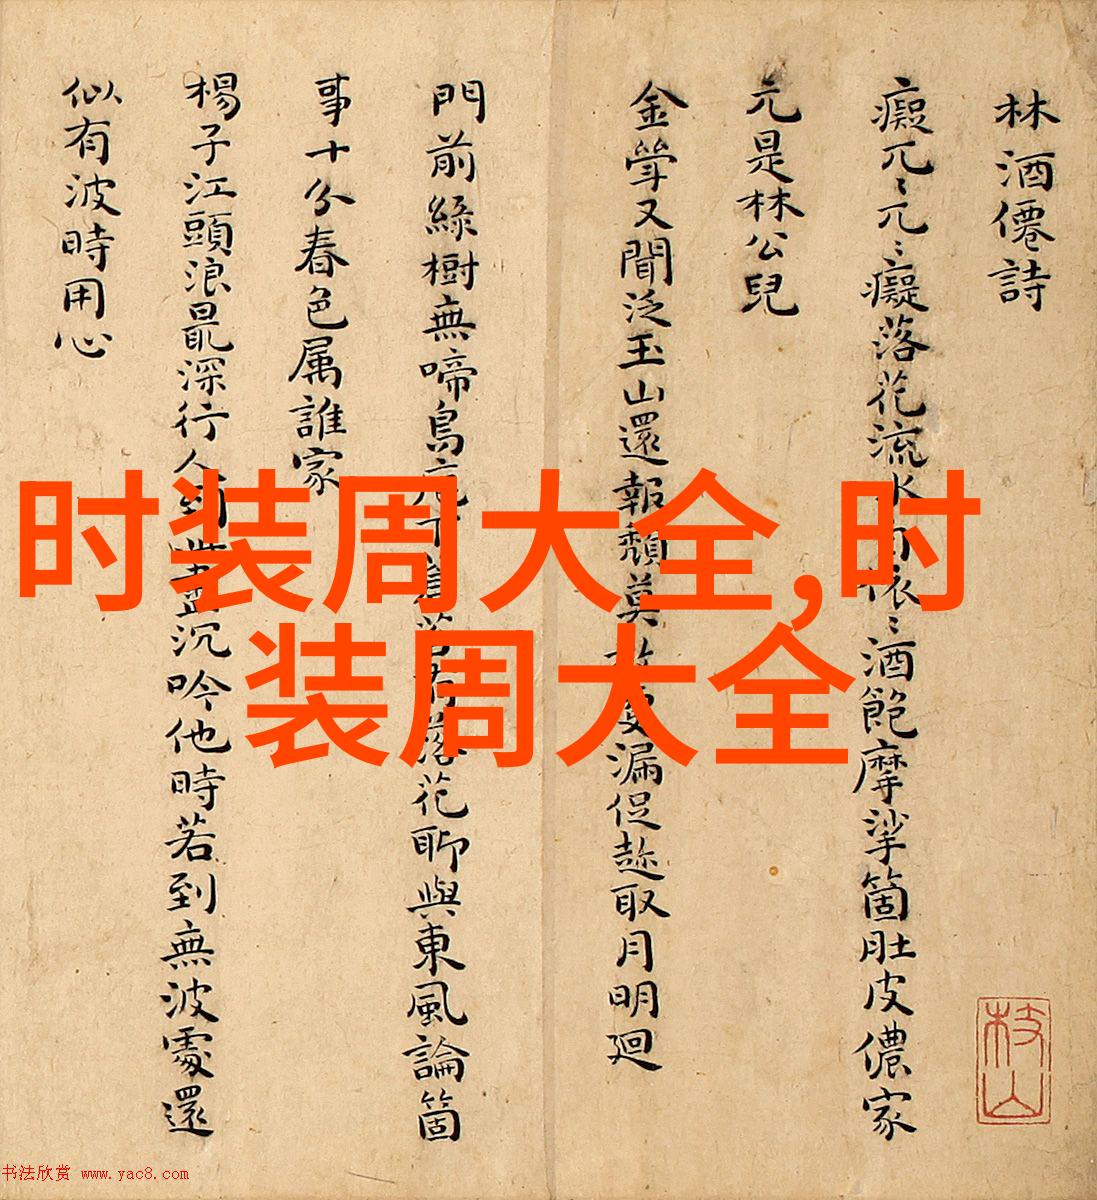 林酒僊詩
癡兀〻兀〻癡落花流水依〻酒飽摩挲箇肚皮儂家
元是林公兒
金又聞泛玉山還報頹莫漏促趂取月明廻
門前綠樹無啼鳥庭下蒼苔有落花聊與東風論箇
事十分春色属誰家
楊子江頭浪最深行人到此盡沉吟他時若到無波處還
似有波時用心
枝山
时装周大全,时
装周大全
书法欣赏 www.yac8.com